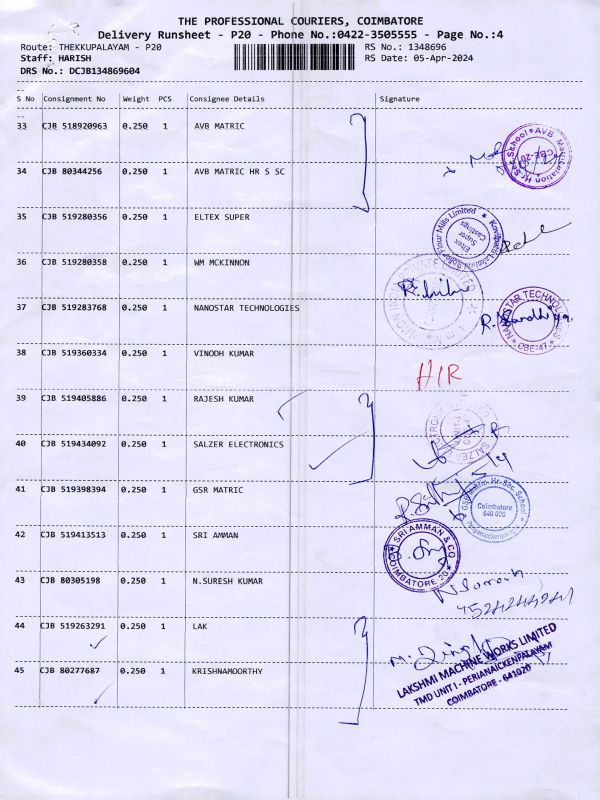 THE PROFESSIONAL COURIERS, COIMBATORE
Delivery Runsheet - P20 - Phone No.:0422-3505555 - Page No.:4
Route: THEKKUPALAYAM - P20 RS No.: 1348696
Staff: HARISH RS Date: 05-Apr-2024
DRS No.: DCJB134869604
S No Consignment No Weight PCS Consignee Details Signature
33 CJB 518920963 0.250 1 AVB MATRIC
34 CJB 80344256 0.250 1 AVB MATRIC HR S SC
AVB Matriculation Hr.Sec.School CBE-20
35 CJB 519280356 0.250 1 ELTEX SUPER
Eltex Super Castings
36 CJB 519280358 0.250 1 WM MCKINNON
37 CJB 519283768 0.250 1 NANOSTAR TECHNOLOGIES
NANOSTAR TECHNOLOGIES CBE-47
38 CJB 519360334 0.250 1 VINODH KUMAR
H/R
39 CJB 519405886 0.250 1 RAJESH KUMAR
40 CJB 519434092 0.250 1 SALZER ELECTRONICS
SALZER
41 CJB 519398394 0.250 1 GSR MATRIC
GSR Matric. Hr. Sec. School
Coimbatore
641 020
42 CJB 519413513 0.250 1 SRI AMMAN
SRI AMMAN & CO. COIMBATORE 20
43 CJB 80305198 0.250 1 N.SURESH KUMAR
44 CJB 519263291 0.250 1 LAK
45 CJB 80277687 0.250 1 KRISHNAMOORTHY
LAKSHMI MACHINE WORKS LIMITED
TMD UNIT I - PERIANAICKENPALAYAM
COIMBATORE - 641020